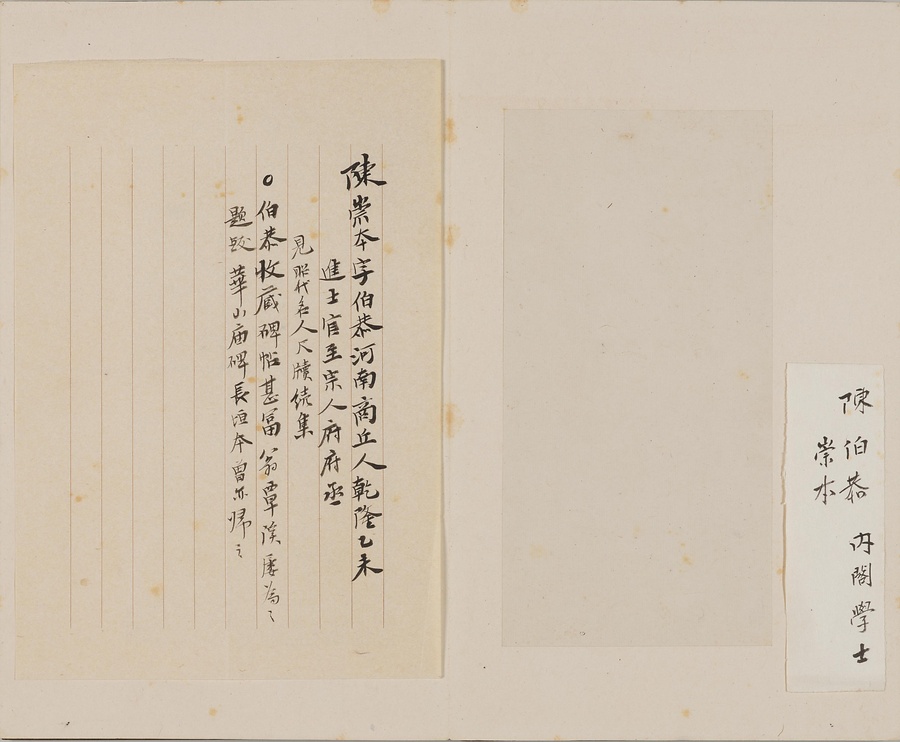 陳伯恭 内閣學士
崇本
陳崇本字伯恭河南商丘人乾隆乙未
進士官至宗人府府丞
見昭代名人尺牘続集
○伯恭收蔵碑帖甚富翁覃谿屡為之
題跋華山庙碑長垣本曾亦归之